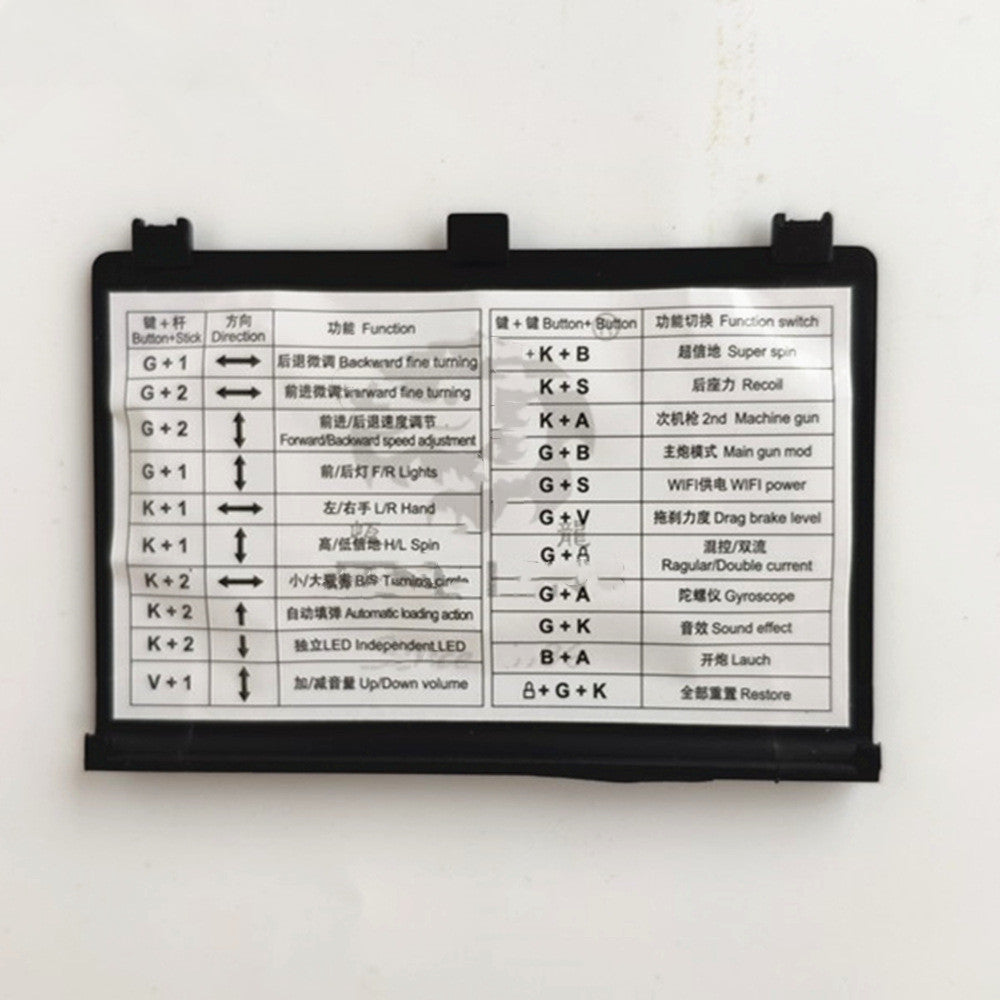 键+杆 方向 功能 Function
Button+Stick Direction
G + 1 ↔ 后退微调 Backward fine turning
G + 2 ↔ 前进微调 fine turning
G + 2 ↕ 前进/后退速度调节
Forward/Backward speed adjustment
G + 1 ↕ 前/后灯 F/R Lights
K + 1 ↔ 左/右手 L/R Hand
K + 1 ↕ 高/低信地 H/L Spin
K + 2 ↔ 小/大
K + 2 ↑ 自动填弹 Automatic loading action
K + 2 ↓ 独立LED Independent LED
V + 1 ↕ 加/减音量 Up/Down volume
键+键 Button+ Button 功能切换 Function switch
+ K + B 超信地 Super spin
K + S 后座力 Recoil
K + A 次机枪 2nd Machine gun
G + B 主炮模式 Main gun mod
G + S WIFI供电 WIFI power
G + V 拖刹力度 Drag brake level
G + 混控/双流
Ragular/Double current
G + A 陀螺仪 Gyroscope
G + K 音效 Sound effect
B + A 开炮 Lauch
+ G + K 全部重置 Restore
龍